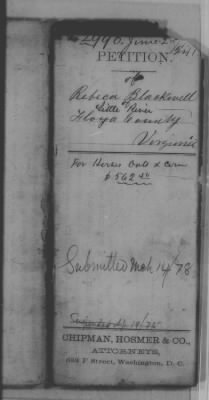 PETITION.
of
Rebeca Blackwell
Little River
Floyd County
Virginia
For Horses Oats & Corn
$562.50
Submitted Mch 14/78
CHIPMAN, HOSMER & CO.,
ATTORNEYS,
F Street, Washington, D. C.